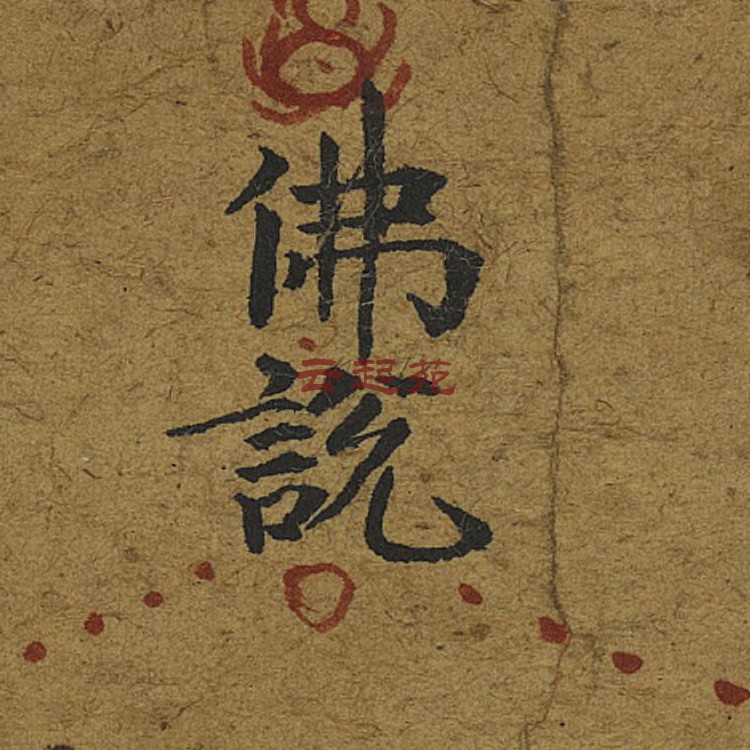 佛說
云起苑